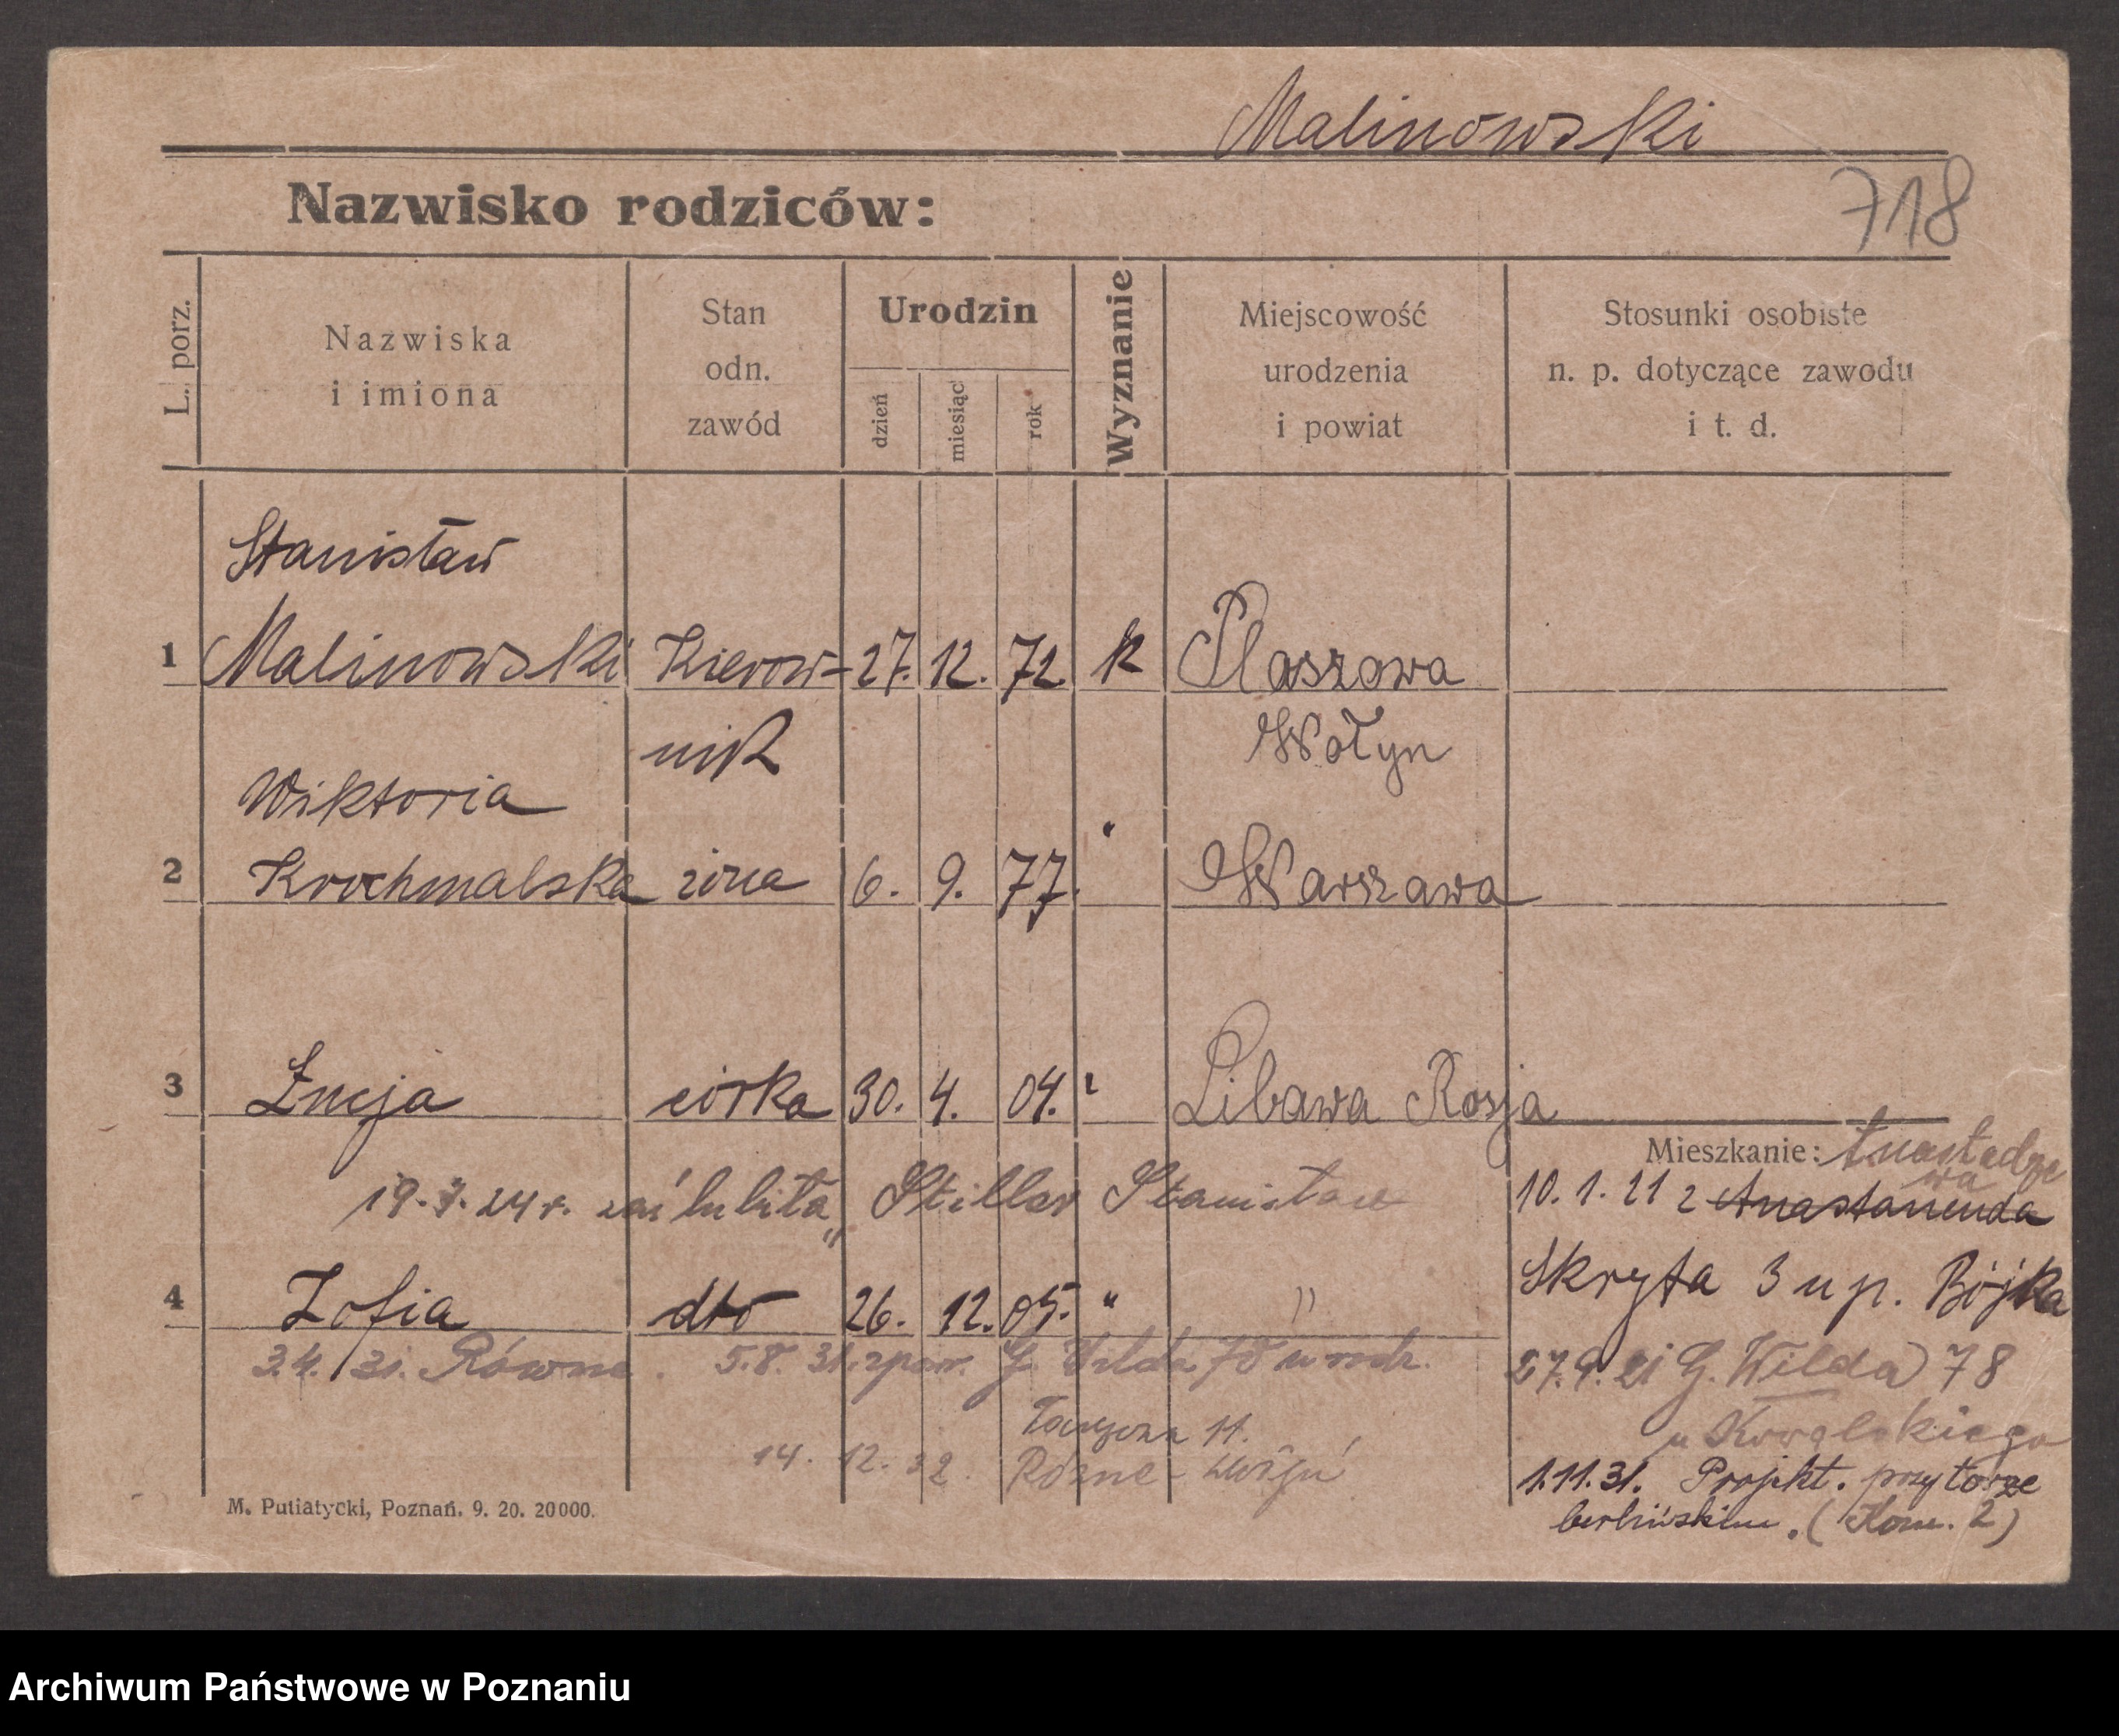 Malinowski
Nazwisko rodziców:
718
L. porz.
Nazwiska
i imiona
Stan
odn.
zawód
Urodzin
dzień
miesiąc
rok
Wyznanie
Miejscowość
urodzenia
i powiat
Stosunki osobiste
n. p. dotyczące zawodu
i t. d.
Stanisław
1 Malinowski Kierow- 27. 12. 72 k Plaszowa
nik Wołyn
Wiktoria "
2 Krochmalska żona 6. 9. 77. Warszawa
3 Łucja córka 30. 4. 04. Libawa Rosja
Mieszkanie:
19. 24 r. zaślubiła Stiller Stanisław
10. 1. 21 z
4 Zofia dto 26. 12. 05. " "
Skryta 3 u p. Bójka
3.4. 31. Równe. 5.8. 31. G. Wilda 78 u rodz.
27.9. 21 G. Wilda 78
u Kowalskiego
11.
14. 12. 32.
1.11.31. Projekt. przy torze
berlińskim. (Kom. 2)
M. Putiatycki, Poznań. 9. 20. 20000.
Archiwum Państwowe w Poznaniu